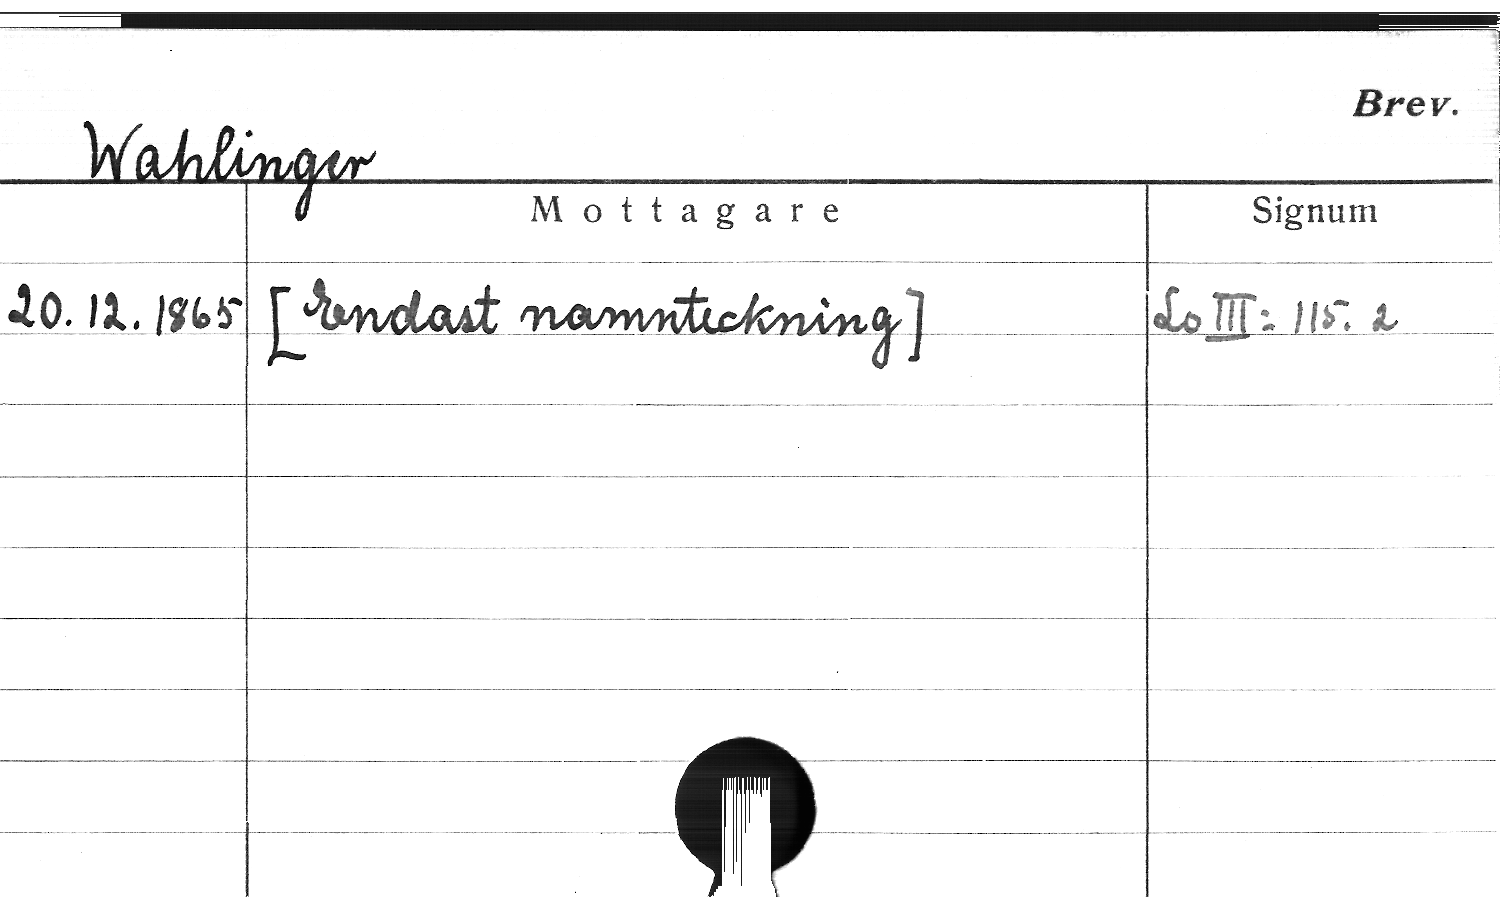 Brev.
Wahlinger
Mottagare Signum
20.12.1865 [Endast namnteckning] Lo III: 115. 2